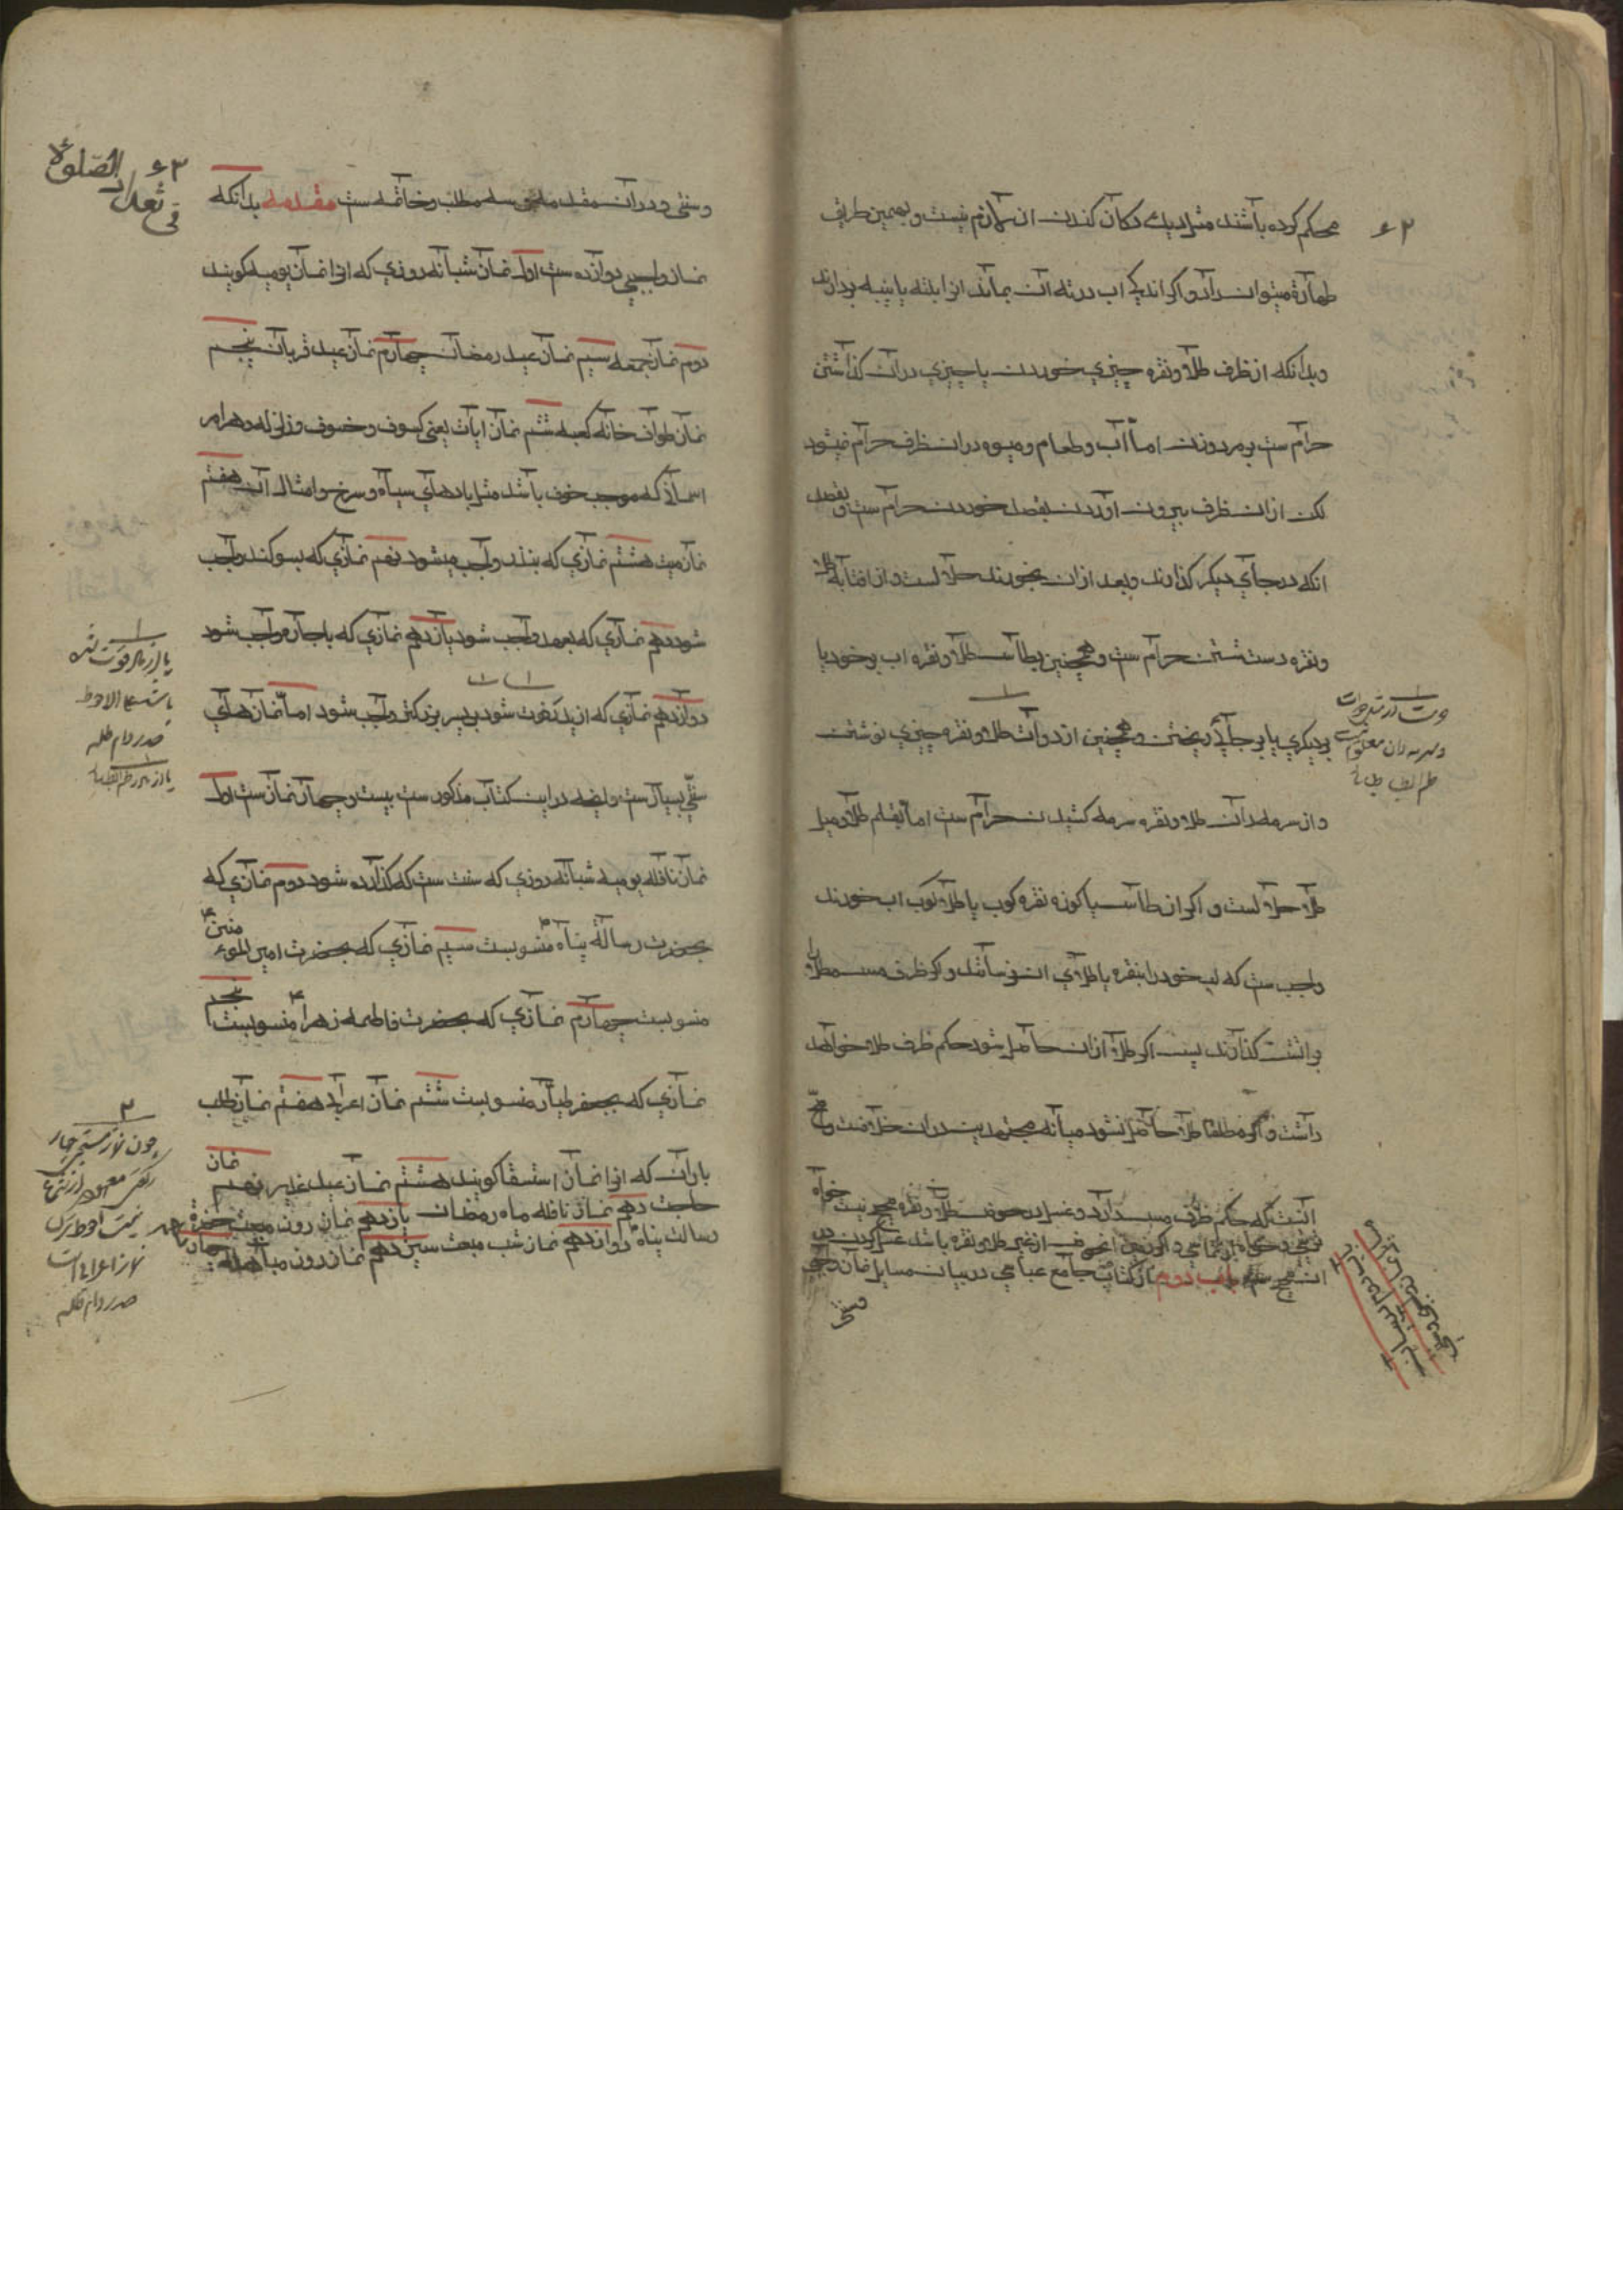 محکم کرده باشند مثل دیك دکان کندن ان لازم نیست و بهمین طریق
طهارة میتوان داد و اکر اندکی اب در ته ان بماند انرا بلته یا پنبه بردارند
وبدانکه از ظرف طلا ونقره چیزي خوردن یا چیزي دران کذاشتن
حرام ست بر مرد وزن اما اب و طعام و میوه دران ظرف حرام نمیشود
لکن ازان ظرف بیرون آوردن بقصد خوردن حرام ست و بقصد
انکه در جاي دیکر کذارند وبعد ازان بخورند حلالست و از افتابه طلا
ونقره دست شستن حرام ست و همچنین بطاس طلا ونقره اب بر خود یا
بر دیکري یا بر جایی ریختن و همچنین از دوات طلا ونقره چیزي نوشتن
و از سرمه دان طلا ونقره سرمه کشیدن حرام ست اما بقلم طلا و میل
طلا حلالست و اکر از طاس یا کوزه نقره کوب یا طلا کوب اب خورند
واجب ست که لب خود را بنقره یا طلاي ان نرسانند و اکر ظرف مس مطلا را
بر اتش کذارند پس اکر طلا ازان حاصل شود حکم ظرف طلا خواهد
داشت و اکر مطلقا طلا حاصل نشود میانه مجتهدین دران خلافست و اصح
انست که حکم ظرف مس دارد و غسل در حوض طلا و نقره صحیح نیست خواه
ان صحیح ست باب دوم از کتاب جامع عباسي در بیان مسایل نماز واجبي
وسنتي
۶۲
۶۳
في تعداد الصلوة
وسنتي و در ان مقدمه و سه مطلب وخاتمه ست مقدمه بدانکه
نماز واجبي دوازده ست اول نماز شبانه روزي که انرا نماز یومیه کویند
دوم نماز جمعه سیم نماز عید رمضان چهارم نماز عید قربان پنجم
نماز طواف خانه کعبه ششم نماز ایات یعني کسوف وخسوف وزلزله وهر امر
اسماني که موجب خوف باشد مثل بادهاي سیاه و سرخ و امثال ان هفتم
نماز میت هشتم نمازي که بنذر واجب میشود نهم نمازي که بسوکند واجب
شود دهم نمازي که بعهد واجب شود یازدهم نمازي که باجاره واجب شود
دوازدهم نمازي که از پدر فوت شود بر پسر بزرکتر واجب شود اما نمازهاي
سنتي بسیارست و انچه در این کتاب مذکور ست بیست وچهار نماز ست اول
نماز نافله یومیه شبانه روزي که سنت ست که کذارده شود دوم نمازي که
بحضرت رسالة پناه منسوبست سیم نمازي که بحضرت امیر المؤمنین
منسوبست چهارم نمازي که بحضرت فاطمه زهرا منسوبست پنجم
نمازي که بجعفر طیار منسوبست ششم نماز اعرابي هفتم نماز طلب
باران که انرا نماز استسقا کویند هشتم نماز عید غدیر نهم نماز
حاجت دهم نماز نافله ماه رمضان یازدهم نماز روز مبعث حضرة
رسالت پناه دوازدهم نماز شب مبعث سیزدهم نماز روز مباهله چهاردهم
چون نماز مستحبي چهار
رکعتي معهود از شرع
نیست احوط ترك
نماز اعرابي است
صدر دام ظله